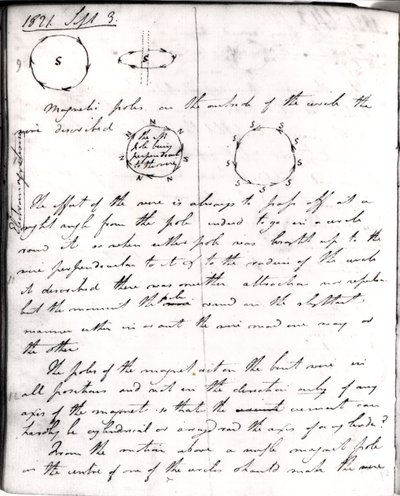 1821 Sept 3.
S S
Magnetic poles on the outside of the circle the
wire described
N N N N N N
the Mt pole being perpendicular to the wire
S S S S S S S S
Electromagnetism
The effort of the wire is always to pass off at a
right angle from the pole indeed to go in a circle
round it so when either pole was brought up to the
wire perpendicular to it & to the radius of the circle
it described there was neither attraction nor repulsion
but the moment the pole varied in the slightest
manner either in or out the wire moved one way or
the other
The poles of the magnet act on the bent wire in
all positions and not in the direction only of any
axis of the magnet so that the current can
hardly be cylindrical or arranged round the axis of a cylinder?
From the motion above a single magnet pole
in the centre of one of the circles should make the wire